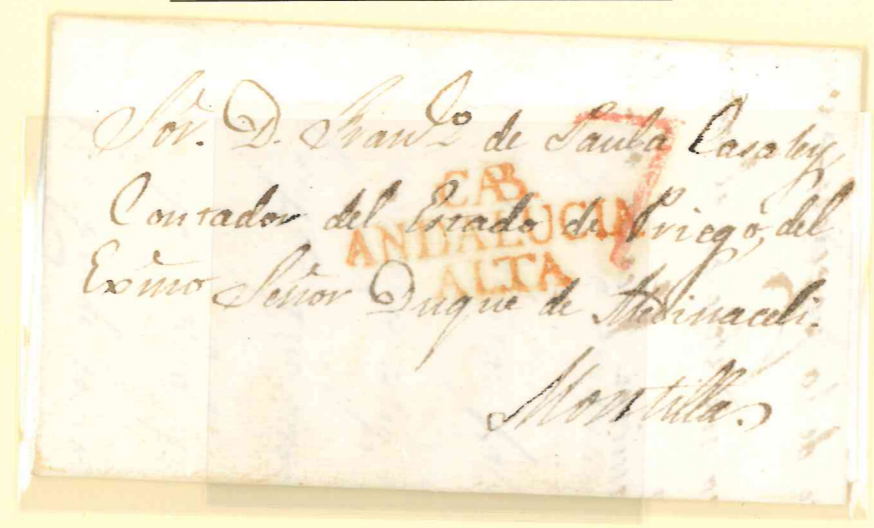 Sor. D. Franco de Paula Casaley
Contador del Estado de Priego, del
Exmo Señor Duque de Medinaceli.
Montilla
CAB.
ANDALUCIA
ALTA
7